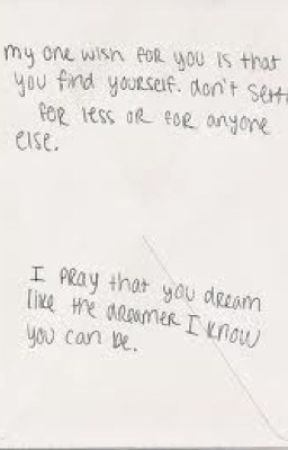 my one wish for you is that
you find yourself. don't sett
for less or for anyone
else.
I pray that you dream
like the dreamer I know
you can be.